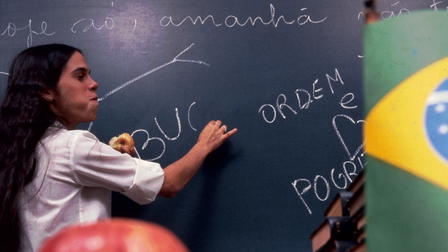 ope só, amanhã não t
BUC
ORDEM
e
POGR